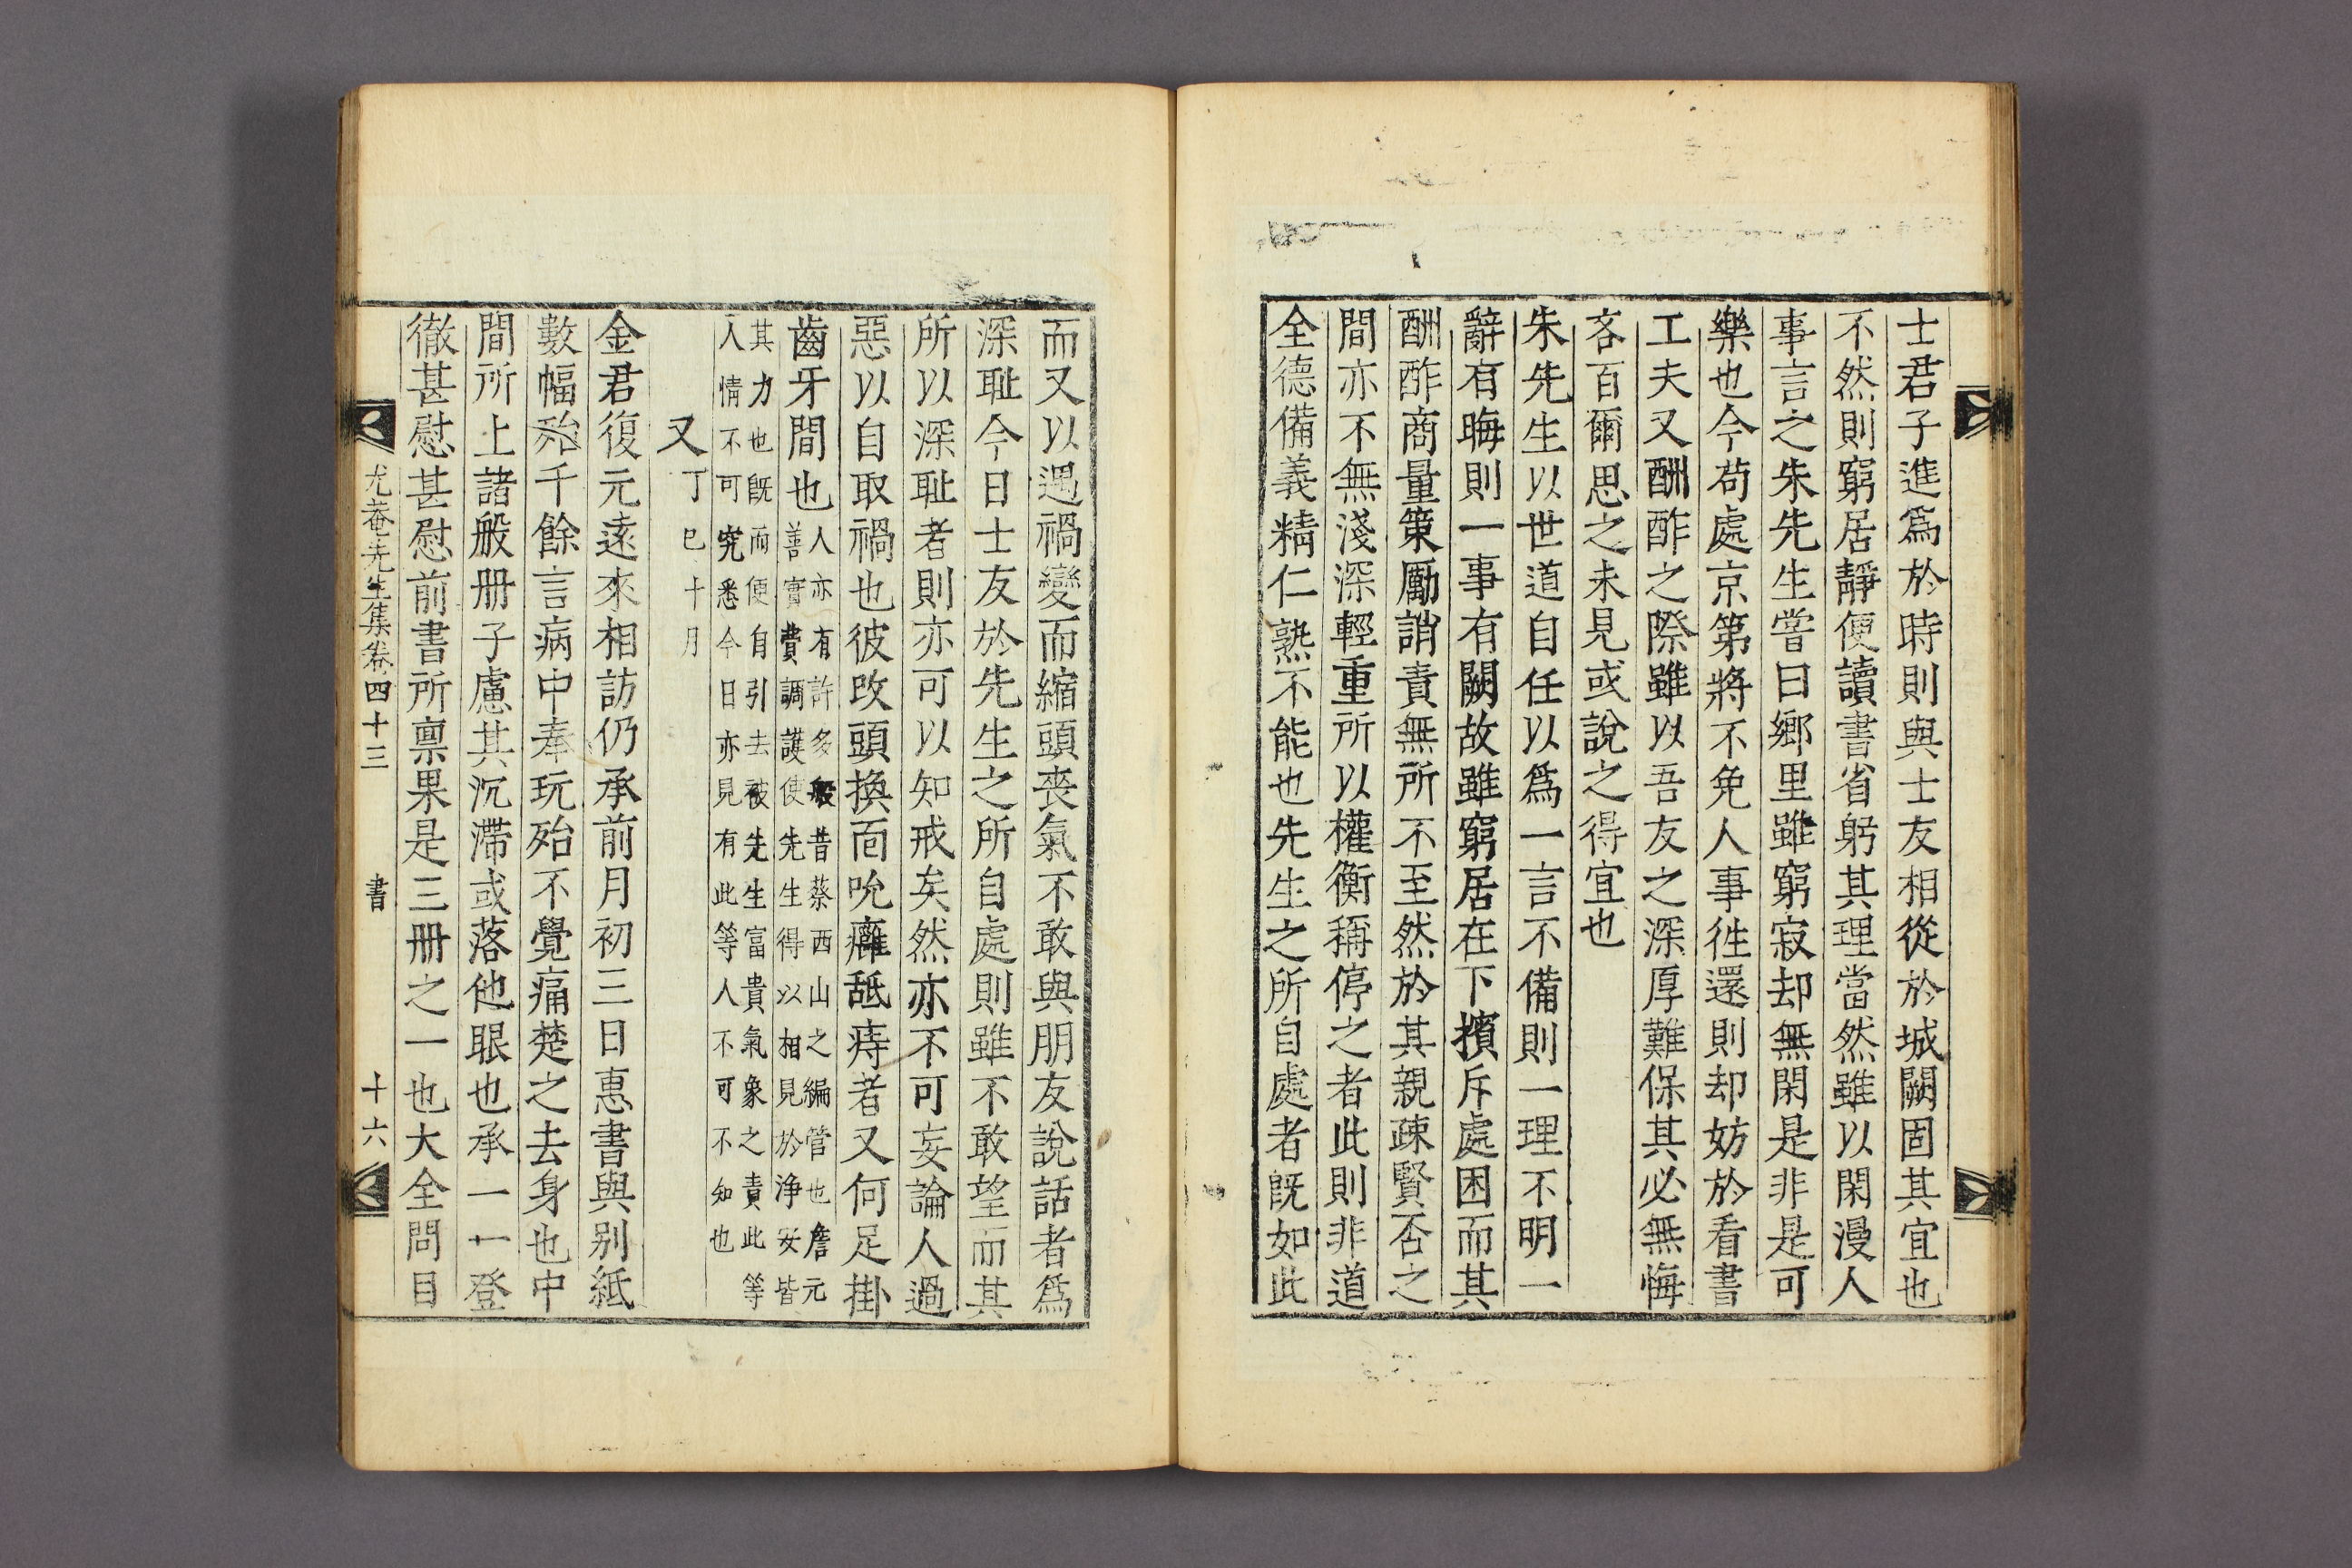 士君子進爲於時則與士友相從於城闕固其宜也
不然則窮居靜便讀書省躬其理當然雖以閑漫人
事言之朱先生嘗曰鄉里雖窮寂却無閑是非是可
樂也今苟處京第將不免人事徃還則却妨於看書
工夫又酬酢之際雖以吾友之深厚難保其必無悔
吝百爾思之未見或說之得宜也
朱先生以世道自任以爲一言不備則一理不明一
辭有晦則一事有闕故雖窮居在下擯斥處困而其
酬酢商量策勵誚責無所不至然於其親疎賢否之
間亦不無淺深輕重所以權衡稱停之者此則非道
全德備義精仁熟不能也先生之所自處者旣如此
而又以遇禍變而縮頭喪氣不敢與朋友說話者爲
深耻今日士友於先生之所自處則雖不敢望而其
所以深耻者則亦可以知戒矣然亦不可妄論人過
惡以自取禍也彼改頭換面吮癰舐痔者又何足掛
齒牙間也人亦有許多般昔蔡西山之編管也詹元
善實費調護使先生得以相見於淨安皆
其力也旣而便自引去被先生富貴氣象之責此等
人情不可究悉今日亦見有此等人不可不知也
又丁巳十月
金君復元遠來相訪仍承前月初三日惠書與別紙
數幅殆千餘言病中奉玩殆不覺痛楚之去身也中
間所上諸般册子慮其沉滯或落他眼也承一一登
徹甚慰甚慰前書所禀果是三册之一也大全問目
尤菴先生集卷四十三 書 十六